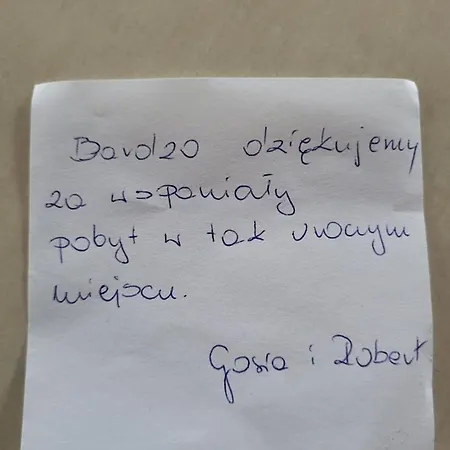 Bardzo dziękujemy
za wspaniały
pobyt w tak uroczym
miejscu.
Gosia i Robert